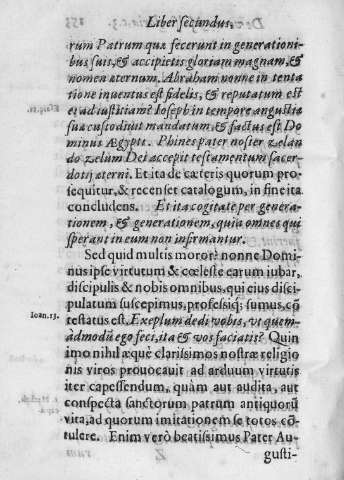 Liber secundus.
rum Patrum quæ fecerunt in generationi
bus suis, & accipietis gloriam magnam, &
nomen æternum. Abraham nonne in tenta
tione inuentus est fidelis, & reputatum est
ei ad iustitiam? Ioseph in tempore angustiæ
suæ custodiuit mandatum, & factus est Do
minus Ægypti. Phines pater noster zelan
do zelum Dei accepit testamentum sacer-
dotij æterni. Et ita de cæteris quorum pro-
sequitur, & recenset catalogum, in fine ita
concludens. Et ita cogitate per genera-
tionem, & generationem, quia omnes qui
sperant in eum non infirmantur.
Sed quid multis moror? nonne Domi-
nus ipse virtutum & cœleste earum iubar,
discipulis & nobis omnibus, qui eius disci-
pulatum suscepimus, professiq; sumus, cō
Ioan. 13.
testatus est, Exemplum dedi vobis, vt quem-
admodū ego feci, ita & vos faciatis? Quin
imo nihil æquè clarissimos nostræ religio
nis viros prouocauit ad arduum virtutis
iter capessendum, quàm aut audita, aut
conspecta sanctorum patrum antiquorū
vita, ad quorum imitationem se totos cō-
tulere. Enim verò beatissimus Pater Au-
gusti-